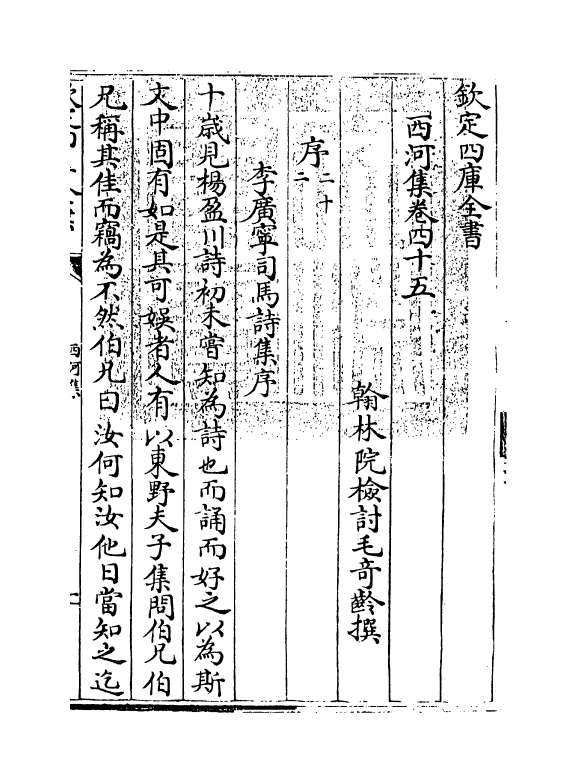 欽定四庫全書
西河集卷四十五
翰林院檢討毛奇齡撰
序二十二
李廣寧司馬詩集序
十歲見楊盈川詩初未嘗知為詩也而誦而好之以為斯
文中固有如是其可娛者人有以東野夫子集問伯兄伯
兄稱其佳而竊為不然伯兄曰汝何知汝他日當知之迄
西河集
一